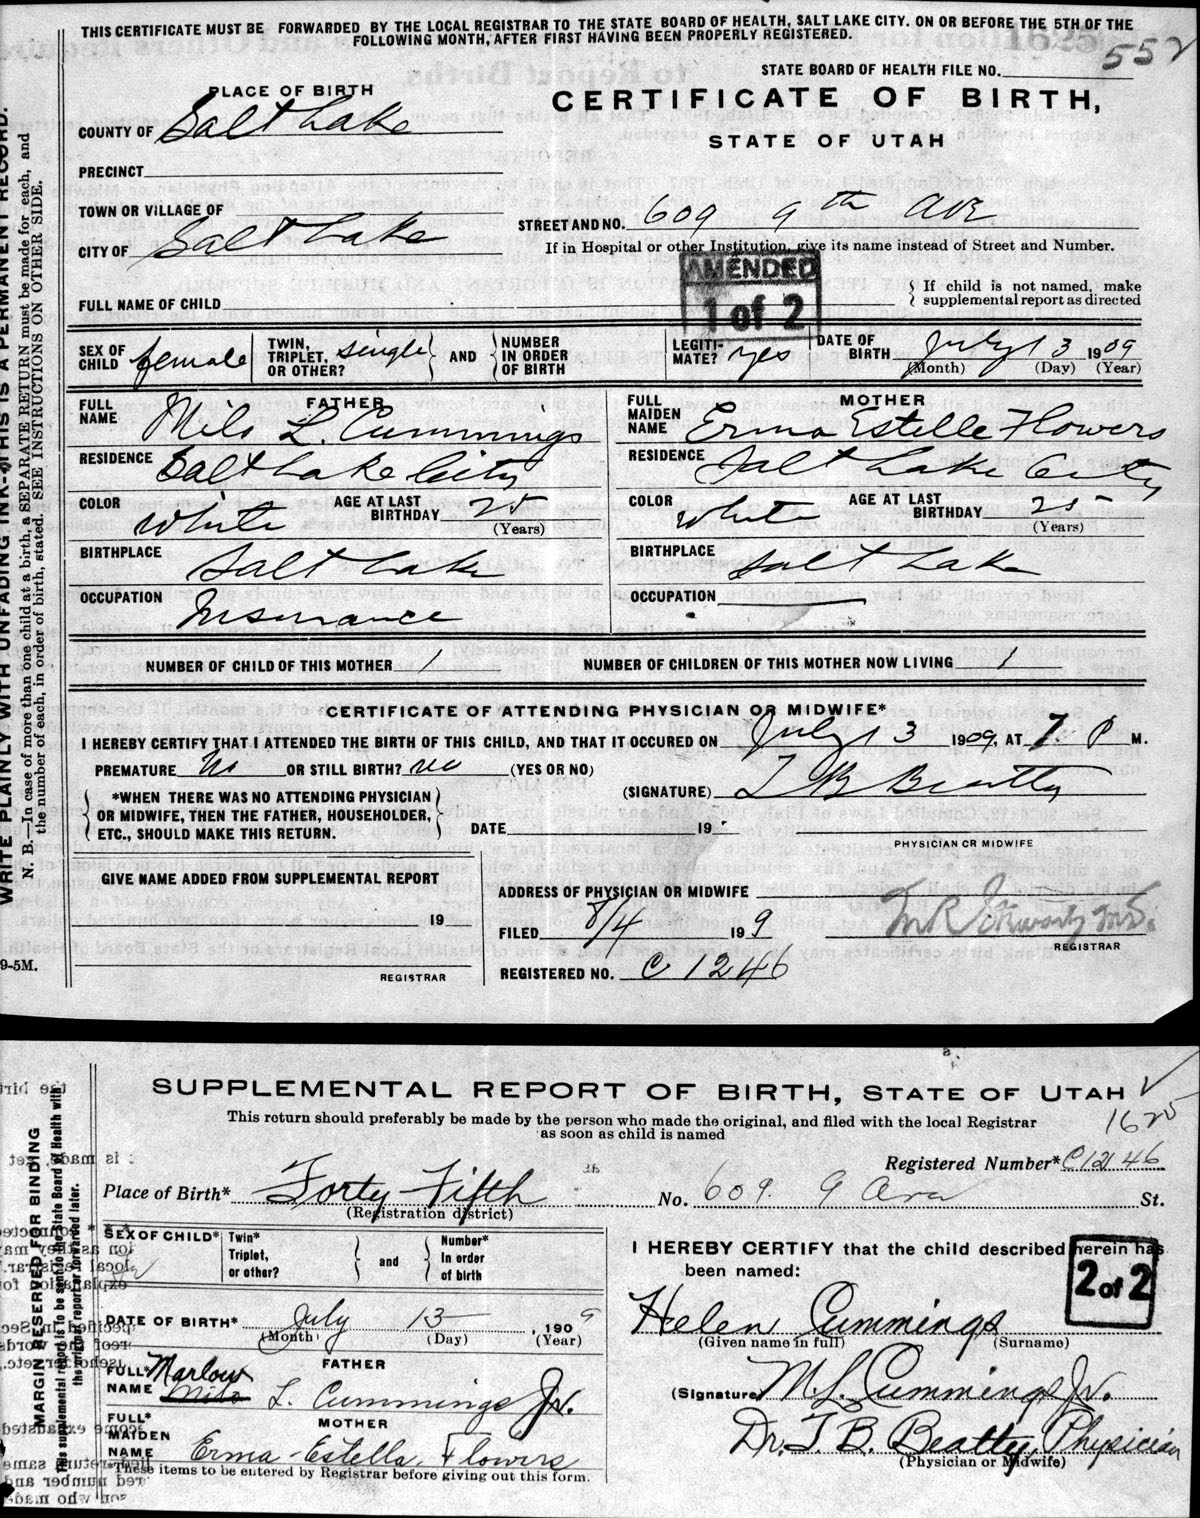 THIS CERTIFICATE MUST BE FORWARDED BY THE LOCAL REGISTRAR TO THE STATE BOARD OF HEALTH, SALT LAKE CITY. ON OR BEFORE THE 5TH OF THE
FOLLOWING MONTH, AFTER FIRST HAVING BEEN PROPERLY REGISTERED.
552
STATE BOARD OF HEALTH FILE NO.
PLACE OF BIRTH
CERTIFICATE OF BIRTH,
COUNTY OF Salt Lake
STATE OF UTAH
PRECINCT
TOWN OR VILLAGE OF
STREET AND NO. 609 9th Ave
CITY OF Salt Lake
If in Hospital or other Institution, give its name instead of Street and Number.
AMENDED
1 of 2
FULL NAME OF CHILD
If child is not named, make
supplemental report as directed
SEX OF CHILD female
TWIN, TRIPLET, OR OTHER? single AND NUMBER IN ORDER OF BIRTH
LEGITI-MATE? yes
DATE OF BIRTH July 13 1909
(Month) (Day) (Year)
FATHER
FULL NAME Milo L. Cummings
RESIDENCE Salt Lake City
COLOR White AGE AT LAST BIRTHDAY 25
(Years)
BIRTHPLACE Salt Lake
OCCUPATION Insurance
MOTHER
FULL MAIDEN NAME Erma Estelle Flowers
RESIDENCE Salt Lake City
COLOR White AGE AT LAST BIRTHDAY 25
(Years)
BIRTHPLACE Salt Lake
OCCUPATION
NUMBER OF CHILD OF THIS MOTHER 1 NUMBER OF CHILDREN OF THIS MOTHER NOW LIVING 1
CERTIFICATE OF ATTENDING PHYSICIAN OR MIDWIFE*
I HEREBY CERTIFY THAT I ATTENDED THE BIRTH OF THIS CHILD, AND THAT IT OCCURED ON July 13 1909, AT 7 P M.
PREMATURE No OR STILL BIRTH? no (YES OR NO)
(SIGNATURE) T B Beatty
*WHEN THERE WAS NO ATTENDING PHYSICIAN
OR MIDWIFE, THEN THE FATHER, HOUSEHOLDER,
ETC., SHOULD MAKE THIS RETURN.
DATE 19
PHYSICIAN OR MIDWIFE
GIVE NAME ADDED FROM SUPPLEMENTAL REPORT
19
REGISTRAR
ADDRESS OF PHYSICIAN OR MIDWIFE
FILED 8/4 19 9
REGISTRAR
REGISTERED NO. C 1246
9-5M.
WRITE PLAINLY WITH UNFADING INK—THIS IS A PERMANENT RECORD.
N. B.—In case of more than one child at a birth, a SEPARATE RETURN must be made for each, and
the number of each, in order of birth, stated. SEE INSTRUCTIONS ON OTHER SIDE.
SUPPLEMENTAL REPORT OF BIRTH, STATE OF UTAH
This return should preferably be made by the person who made the original, and filed with the local Registrar
as soon as child is named
1625
Registered Number* C1246
Place of Birth* Forty-Fifth No. 609. 9 Ave St.
(Registration district)
SEX OF CHILD*
Twin* Triplet, or other? and Number* In order of birth
DATE OF BIRTH* July 13 1909
(Month) (Day) (Year)
FATHER
FULL* NAME Marlow Milo L. Cummings Jr.
MOTHER
FULL* MAIDEN NAME Erma-Estella Flowers
*These items to be entered by Registrar before giving out this form.
I HEREBY CERTIFY that the child described herein has
been named:
2 of 2
Helen Cummings
(Given name in full) (Surname)
(Signature M. L. Cummings, Jr.
Dr. T. B. Beatty, Physician
(Physician or Midwife)
MARGIN RESERVED FOR BINDING
This supplemental report is to be sent to the State Board of Health with
the original report or forwarded later.